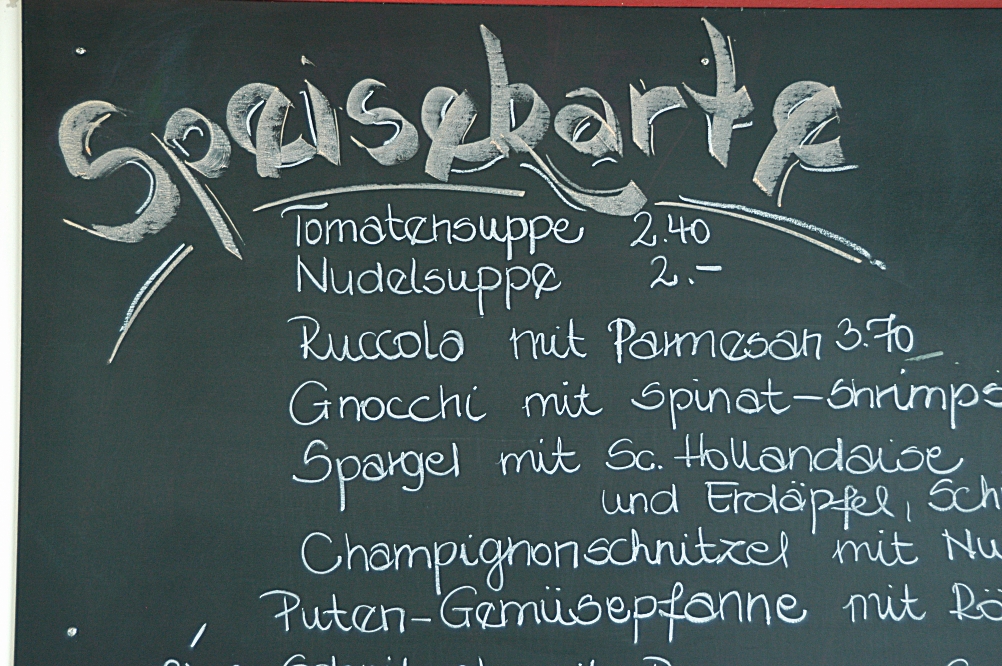 Speisekarte
Tomatensuppe 2.40
Nudelsuppe 2.-
Ruccola mit Parmesan 3.70
Gnocchi mit Spinat-Shrimps
Spargel mit Sc. Hollandaise
und Erdäpfel, Sch
Champignonschnitzel mit Nu
Puten-Gemüsepfanne mit Rö